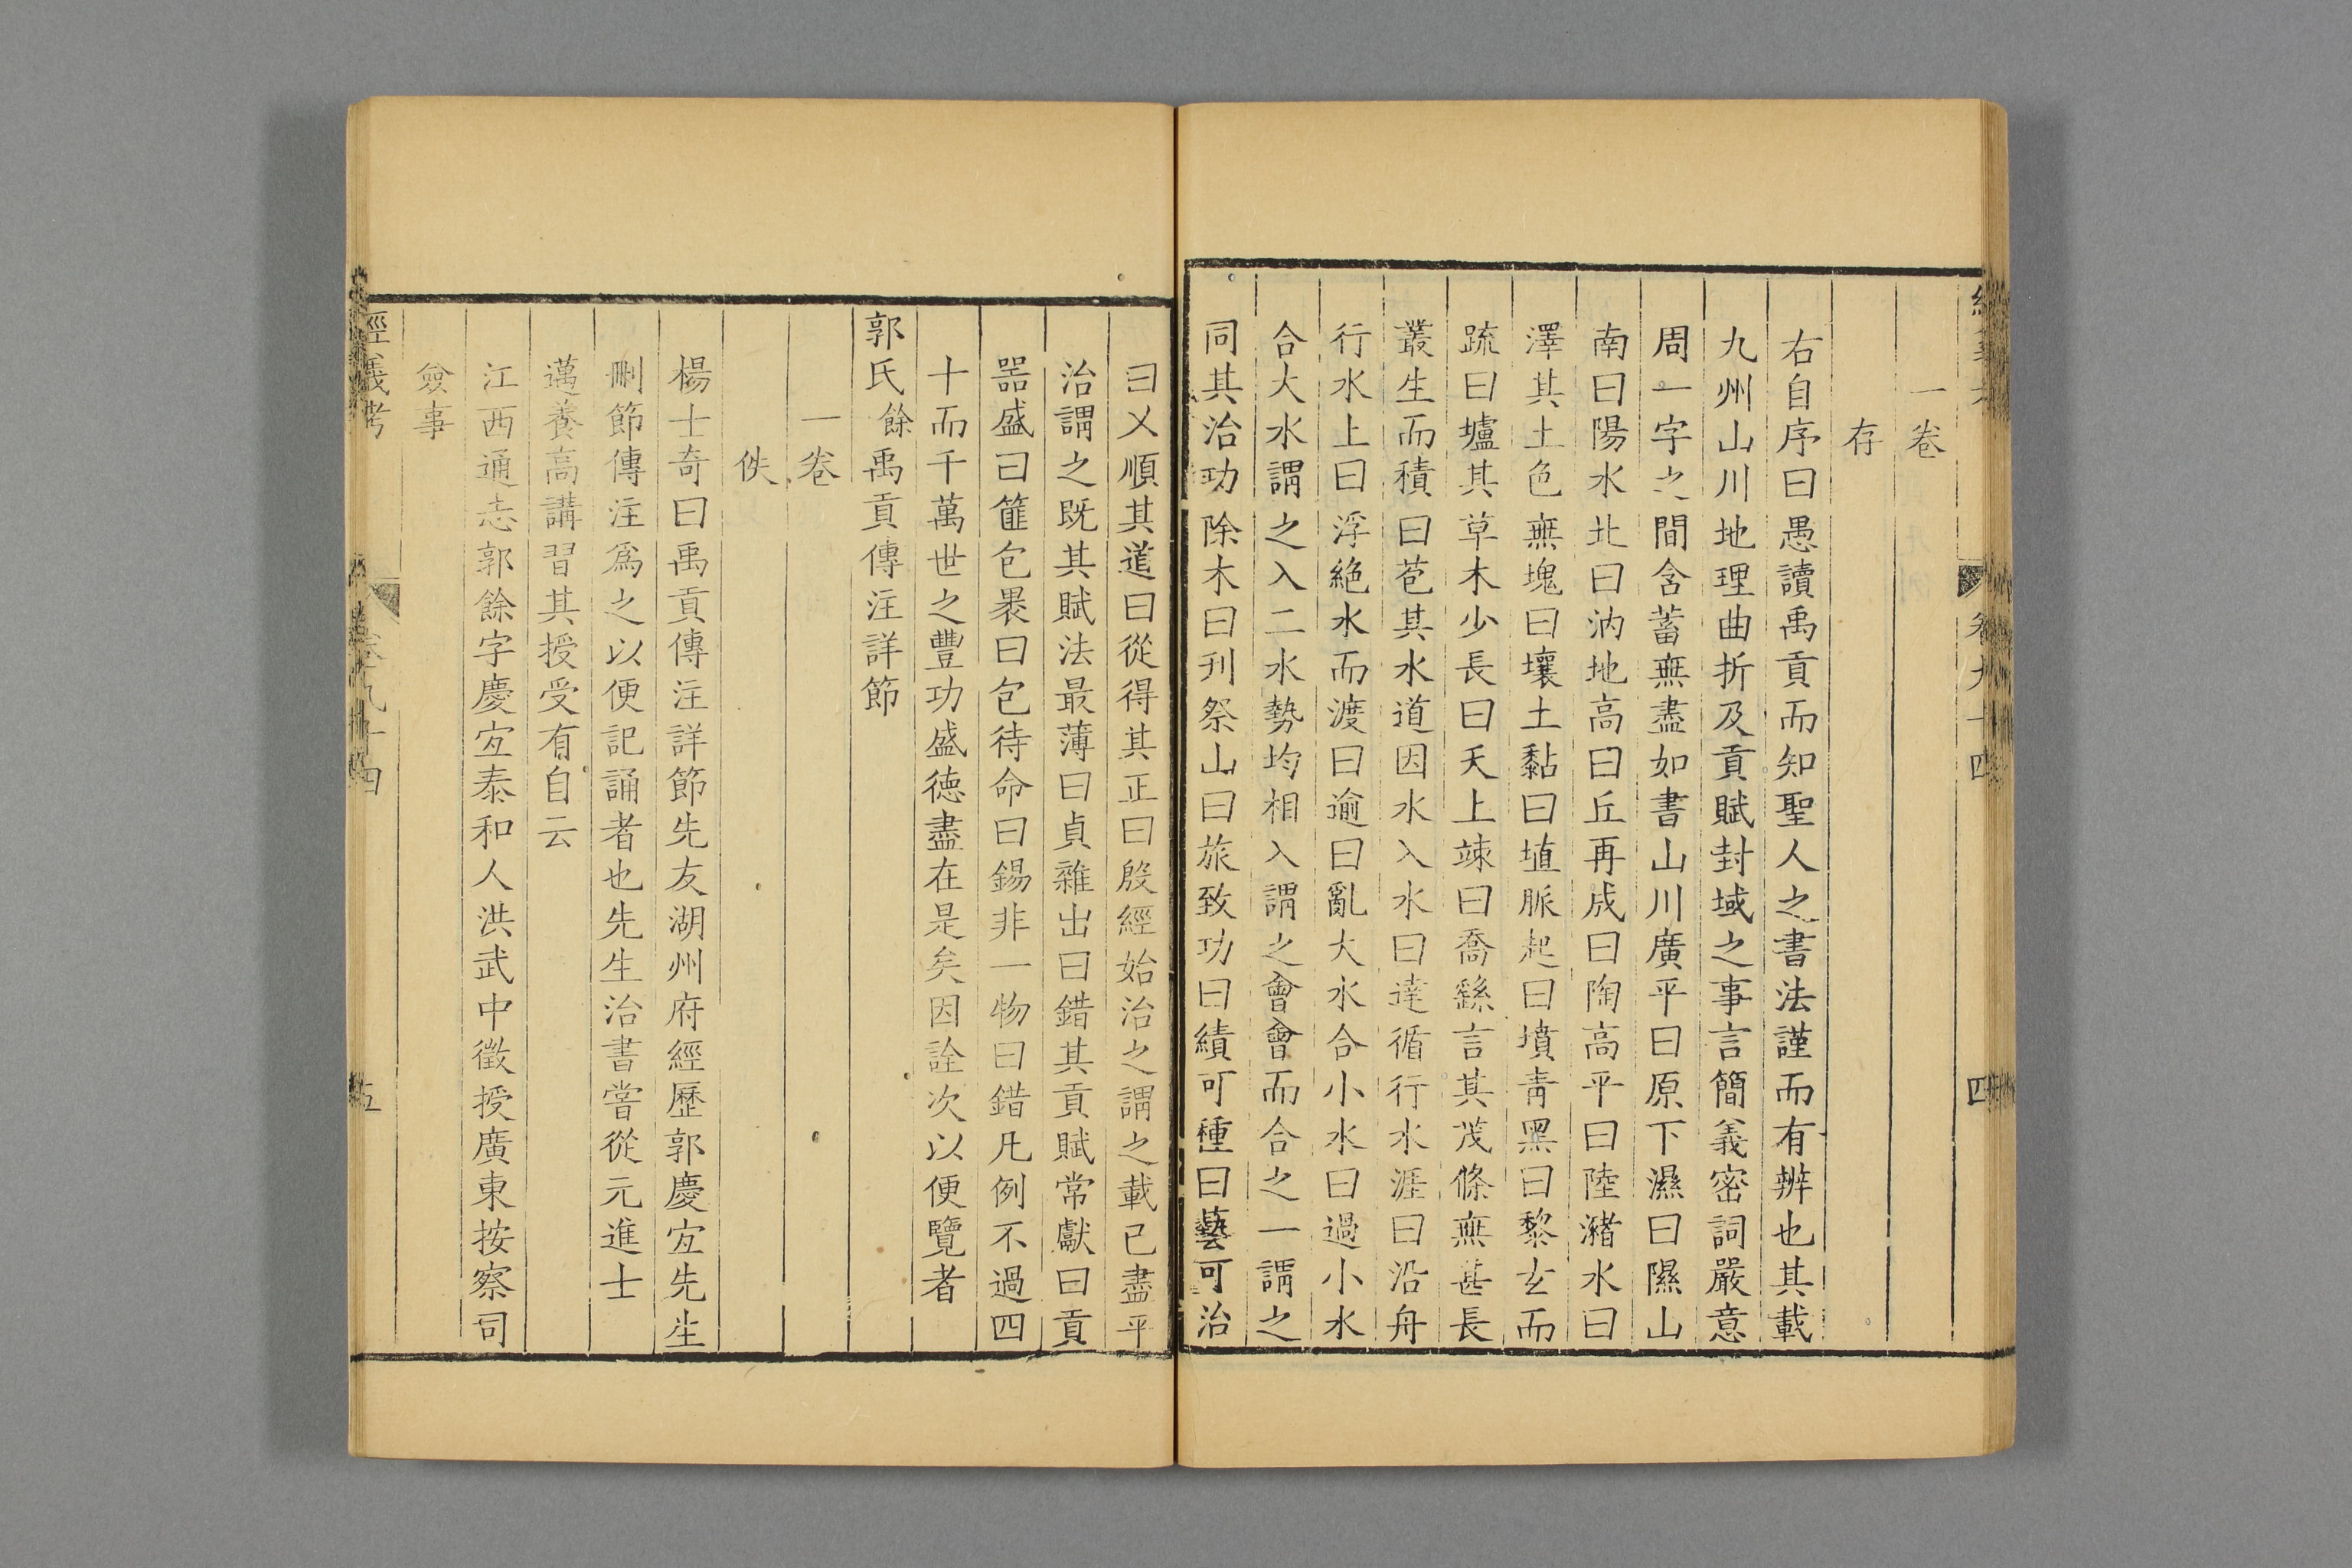 一卷
存
右自序曰愚讀禹貢而知聖人之書法謹而有辨也其載
九州山川地理曲折及貢賦封域之事言簡義密詞嚴意
周一字之間含蓄無盡如書山川廣平曰原下濕曰隰山
南曰陽水北曰汭地高曰丘再成曰陶高平曰陸瀦水曰
澤其土色無塊曰壤土黏曰埴脈起曰墳青黑曰黎玄而
疏曰壚其草木少長曰夭上竦曰喬繇言其茂條無甚長
叢生而積曰苞其水道因水入水曰達循行水涯曰沿舟
行水上曰浮絶水而渡曰逾曰亂大水合小水曰過小水
合大水謂之入二水勢均相入謂之會會而合之一謂之
同其治功除木曰刋祭山曰旅致功曰績可種曰藝可治
曰乂順其道曰從得其正曰殷經始治之謂之載已盡平
治謂之既其賦法最薄曰貞雜出曰錯其貢賦常獻曰貢
噐盛曰篚包褁曰包待命曰錫非一物曰錯凡例不過四
十而千萬世之豐功盛徳盡在是矣因詮次以便覽者
郭氏餘禹貢傳注詳節
一卷
佚
楊士奇曰禹貢傳注詳節先友湖州府經歷郭慶宜先生
刪節傳注爲之以便記誦者也先生治書嘗從元進士
邁養高講習其授受有自云
江西通志郭餘字慶宜泰和人洪武中徵授廣東按察司
僉事
經義考
卷九十四
五